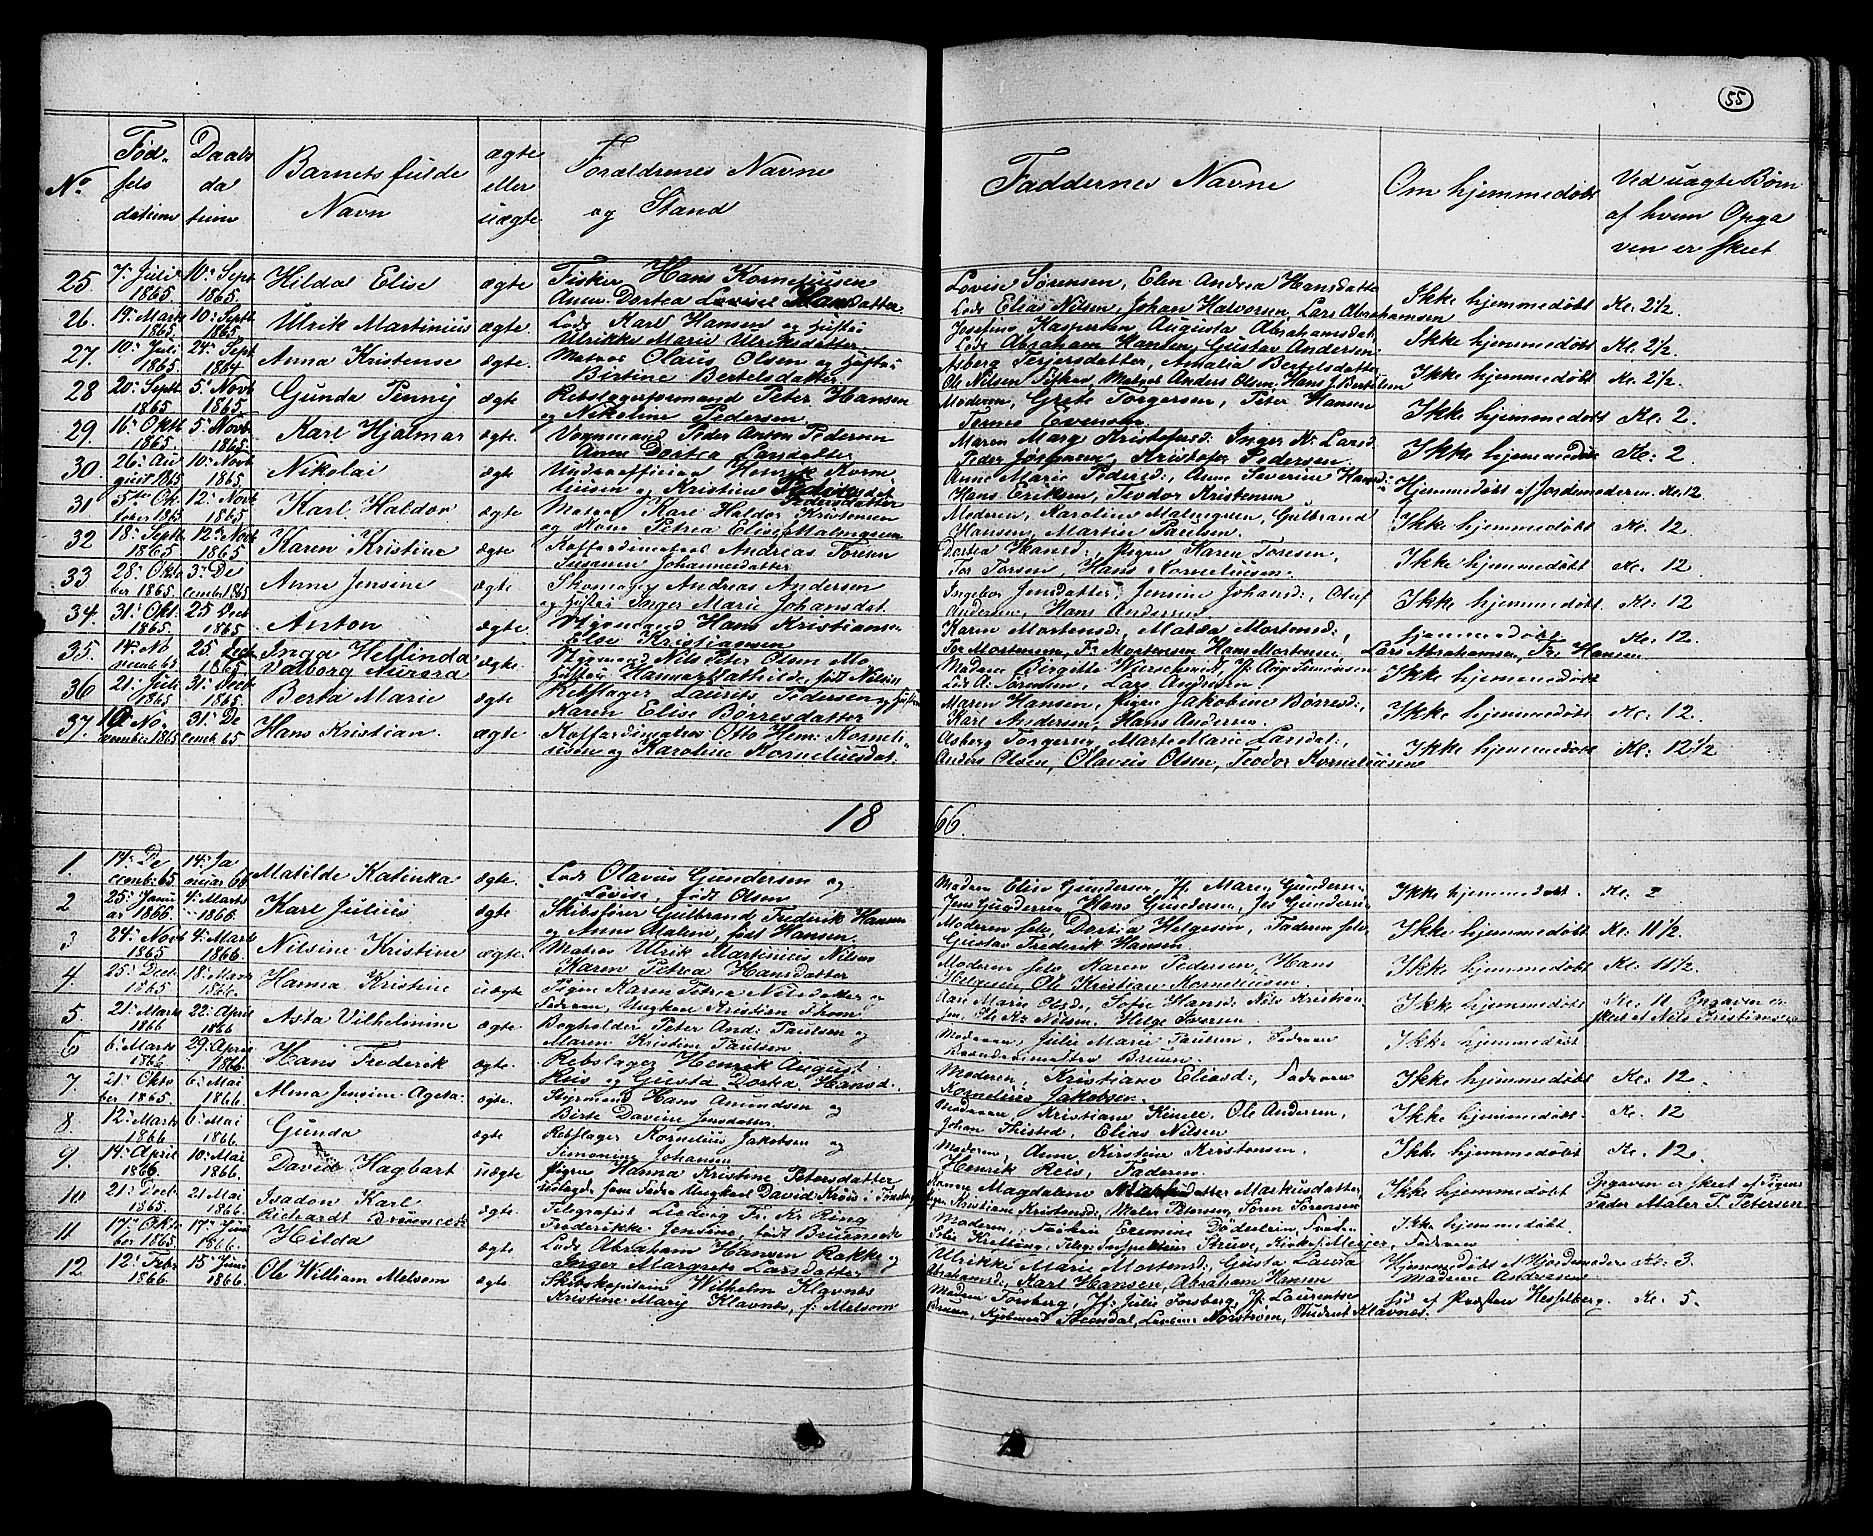 55
No.
Fødselsdatum
Daabsdatum
Barnets fulde Navn
ægte eller uægte
Forældrenes Navne og Stand
Faddernes Navne
Om hjemmedøbt
Ved uægte Børn af hvem Opgaven er skeet
25 7. Juli 1865. 10. Sept 1865. Hilda Elise ægte Fisker Hans Korneliusen
Anne Dortea Lovise Hansdatter
Lovise Sørensen, Elen Andrea Hansdatter
Lods Elias Nilsen, Johan Halvorsen, Lars Abrahamsen
Ikke hjemmedøbt Kl: 2½.
26. 19. Marts 1865 10. Septb 1865. Ulrik Martinius ægte. Lods Karl Hansen og Hustru
Ulrikke Marie Ulriksdatter
Josefine Kaspersen Augusta Abrahamsdat:
Lods Abraham Hansen, Gustav Andersen
Ikke hjemmedøbt Kl. 2½.
27. 10. Juli 1865 24. Sept 1864 Anna Kristense ægte. Matros Olaus Olsen og Hustru
Birtine Bertelsdatter
Asberg Terjersdatter, Amalia Bertelsdatter
Ole Nilsen, Matros Anders Olsen, Hans J. Bertelsen
Ikke hjemmedøbt Kl: 2½.
28 20. Septb 1865 5. Novb 1865. Gunda Penny ægte Rebslagerformand Peter Hansen
og Nikoline Pedersen
Moderen, Grete Torgersen, Peter Hansen
Tormes Evensen
Ikke hjemmedøbt Kl: 2.
29. 16. Oktb 1865 5. Novb 1865. Karl Hjalmar ægte. Vognmand Peder Anton Pedersen
Anne Dortea Larsdatter
Maren Marg Kristofersd: Inger K. Larsd.
Peder Jørgensen, Kristofer Pedersen
Ikke hjemmedøbt Kl: 2.
30 26. August 1865 10. Novb 1865. Nikolai ægt. Underoffician Henrik Korneliusen og Kristine
Anne Marie Pedersd:, Anne Severine Hansd:
Hans Eriksen, Teodor Kristensen
Hjemmedøbt af Jordemoderen. Kl. 12.
31 5te October 1865 12. Novb 1865. Karl Haldor ægte Matros Karl Haldor Kristensen
og Kone Petrea Elise Malmgreen
Moderen, Karoline Malmgreen, Gulbrand
Hansen, Martin Paulsen.
Ikke hjemmedøbt Kl: 12
32 18. Septb 1865 12. Novb 1865. Karen Kristine ægte Kofferdimatros Andreas Torsen
Susanne Johannesdatter
Dortea Hansd:, Pigen Karen Toresen,
Tor Torsen, Hans Korneliusen.
Ikke hjemmedøbt Kl: 12.
33 28. Oktober 1865. 3. December 1865 Anne Jensine ægte Skomager Andreas Andersen
og Hustru Inger Marie Johansdat.
Ingebor Jensdatter, Jensine Johansd:, Oluf
Andersen, Hans Andersen
Ikke hjemmedøbt Kl: 12
34. 31. Okt. 1865. 25 Dect 1865. Anton ægte. Hans Kristiansen
Else Kristiansen
Karen Mortensd:, Matea Mortensd:,
Tor Mortensen, Fr Mortensen Hans Mortensen, Lars Abrahamsen, Fr: Hansen
hjemmedøbt Kl: 12.
35. 14. November 65 25 Dectb 1865 Inga Hellinda
Valborg Aurora ægte. Nils Peter Olsen Mo
Hustru Hanna Mathilde, født Nilsen
Madam Birgitte Wierschmidt, Jf. Anne Simonsen
Lars Andersen
Ikke hjemmedøbt
36 21. Juli 1865 31. Dect 1865. Berta Marie ægte Rebslager Laurits Pedersen og Hustru
Karen Elise Børresdatter
Maren Hansen, Pigen Jakobine Børresd:,
Karl Andersen, Hans Andersen.
Ikke hjemmedøbt Kl: 12.
37. 10 November 1865 31. Decemb. 65 Hans Kristian. ægte Kofferdimatros Otto Hem: Korneliusen og Karoline Korneliusdat:
Asberg Torgersen, Marte Marie Larsdat:,
Anders Olsen, Olaves Olsen, Teodor Korneliusen
Ikke hjemmedøbt Kl: 12½
1866.
1. 14. December 65 14. Januar 66 Matilde Katinka ægte. Lods Olavus Gundersen og
Lovise, født Olsen
Madam Elise Gundersen, Jf. Maren Gundersen
Jens Gundersen, Hans Gundersen, Jes Gundersen
Ikke hjemmedøbt. Kl: 2
2 25. Januar 1866 4. Marts 1866. Karl Julius ægte Skibsfører Gulbrand Frederik Hansen
og Anne Malen, født Hansen.
Moderen selv, Dortea Helgesen, Faderen selv
Gustav Frederik Hansen
Ikke hjemmedøbt Kl: 11½.
3 24. Novb 1865 4. Marts 1866. Nilsine Kristine ægte. Matros Ulrik Martinius Nilsen
Karen Petrea Hansdatter
Moderen selv Karen Pedersen, Hans
Helgesen, Ole Kristian Korneliusen.
Ikke hjemmedøbt Kl: 11½.
4. 25. Dect 1865 18. Marts 1866. Hanna Kristine uægte Pigen Karen Petrea Nilsdatter og
Faderen, Ungkarl Kristian Thom
Ane Marie Olsd:, Sofie Hansd: Nils Kristiansen, Ole Kr Nilsen. Helge Iversen
Ikke hjemmedøbt Kl: 11 Opgaven er
skeet af Nils Kristiansen
5. 21. Marts 1866 22. April 1866 Asta Vilhelmine ægte. Bogholder Peter And: Paulsen og
Maren Kristine Paulsen.
Moderen, Julie Marie Paulsen, Faderen
Bruun.
Ikke hjemmedøbt
6 6. Marts 1866 29. April 1866. Hans Frederik ægte. Rebslager Henrik August
Reis og Gusta Dorka Hansd.
Moderen, Kristiane Eliasd:, Faderen
Kornelius Jakobsen.
Ikke hjemmedøbt Kl: 12.
7. 21. Oktober 1865 6. Mai 1866. Alma Jensine Ageta. ægte. Styrmand Hans Amundsen og
Birte Davine Jensdatter.
Moderen, Kristiane Kinele, Ole Andersen,
Johan Thisted, Elias Nilsen
Ikke hjemmedøbt. Kl: 12
8. 12. Marts 1866 6. Mai 1866. Gunda ægte Rebslager Kornelius Jakobsen og
Simonine Johansen
Moderen, Anne Kirstine Kristensen,
Henrik Reis, Faderen
Ikke hjemmedøbt Kl: 12.
9. 14. April 1866 10. Mai 1866. David Hagbart uægte Pigen Hanna Kristine Petersdatter
udlagde som Fader Ungkarl David Kröis i Tønsberg
Hanna Magdalene Markusdatter,
Pigen Kristiane Kristensd:, Maler Petersen, Søren Sørensen
Ikke hjemmedøbt Opgaven er skeet af Pigens
Fader Maler P. Petersen
10 21. Dect 1865. 21 Mai 1866. Isadon Karl
Richardt Bruenech ægte. Telegrafist Ludvig Fr. Kr Ring
Frederikke Jensine, født Bruenech
Moderen, Frøken Hermine Döderlein,
Kretberg, Telegr. Inspekteur Struve, Kirkes. Meyer, Faderen
Ikke hjemmedøbt
11 17. Oktober 1865 17. Juni 1866. Hilda ægte Lods Abraham Hansen Rakke og
Inger Margrete Larsdatter
Ulrikke Marie Mortensd:, Gusta Laura
Abrahamsd:, Karl Hansen, Abraham Hansen
Hjemmedøbt af Hjordemoder
Madame Andreasens Kl: 3
12 12. Febr 1866 15. Juni 1866. Ole William Melsom ægte Skibskaptein Wilhelm Klavnes
Kristine Mary Klavnes, f: Melsom
Madam Forsberg, Jf: Julie Forsberg, Jf. Laurentse
Bruun, Kjøbmand Steendal, Nørstrøm, Student Klavnes.
af Presten Hesselberg. Kl: 5.